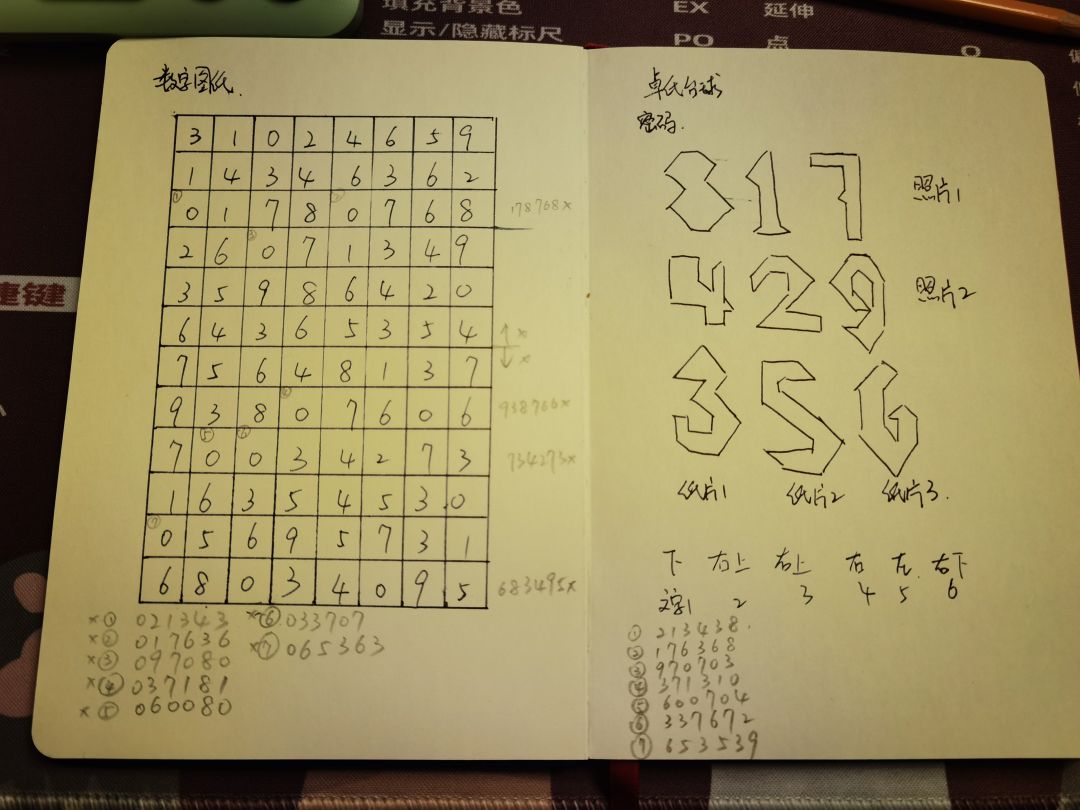 填充背景色 EX 延伸
显示/隐藏标尺 PO 点
建键
数字图纸.
3 1 0 2 4 6 5 9
1 4 3 4 6 3 6 2
① 0 1 7 8 0 7 6 8 178768×
2 6 0 7 1 3 4 9
3 5 9 8 6 4 2 0
6 4 3 6 5 3 5 4 ↑×
7 5 6 4 8 1 3 7 ↓×
9 3 8 0 7 6 0 6 938766×
7 0 0 3 4 2 7 3 734273×
1 6 3 5 4 5 3 0
⑦ 0 5 6 9 5 7 3 1
6 8 0 3 4 0 9 5 683495×
×① 021343
×② 017636
×③ 097080
×④ 037181
×⑤ 060080
×⑥ 033707
×⑦ 065363
卓氏台球
密码.
817 照片1
429 照片2
356
纸片1 纸片2 纸片3.
下 右上 右上 右 左 右下
文字1 2 3 4 5 6
① 213438.
② 176368
③ 970703
④ 371310
⑤ 600704
⑥ 337672
⑦ 653539